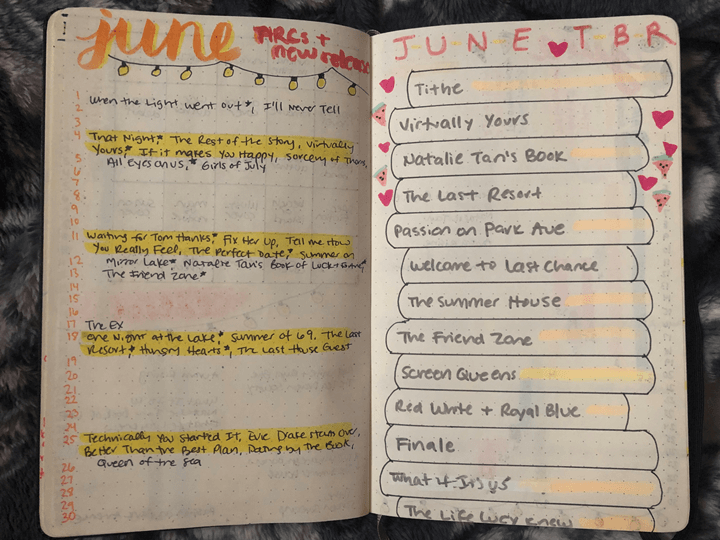 june
ARCs +
new release
1
2 When the Light went out*, I'll Never Tell
3
4 That Night,* The Rest of the Story, Virtually
Yours,* If it makes You Happy, Sorcery of Thorns,
5 All Eyes on us,* Girls of July
6
7
8
9
10
11 Waiting for Tom Hanks,* Fix Her Up, Tell me How
You Really Feel, The Perfect Date,* Summer on
12 Mirror Lake* Natalie Tan's Book of Luck + Fortune,
13 The Friend Zone*
14
15
16
17 The Ex
18 One Night at the Lake,* Summer of 69, The Last
Resort,* Hungry Hearts*, The Last House Guest
19
20
21
22
23
24
25 Technically You Started It, Eve Drake starts Over,
Better Than the Best Plan, Dating by The Book,
26 Queen of the Sea
27
28
29
30
JUNE TBR
Tithe
Virtually Yours
Natalie Tan's Book
The Last Resort
Passion on Park Ave
Welcome to Last Chance
The Summer House
The Friend Zone
Screen Queens
Red White + Royal Blue
Finale
What if It's us
The Like Lucy knew